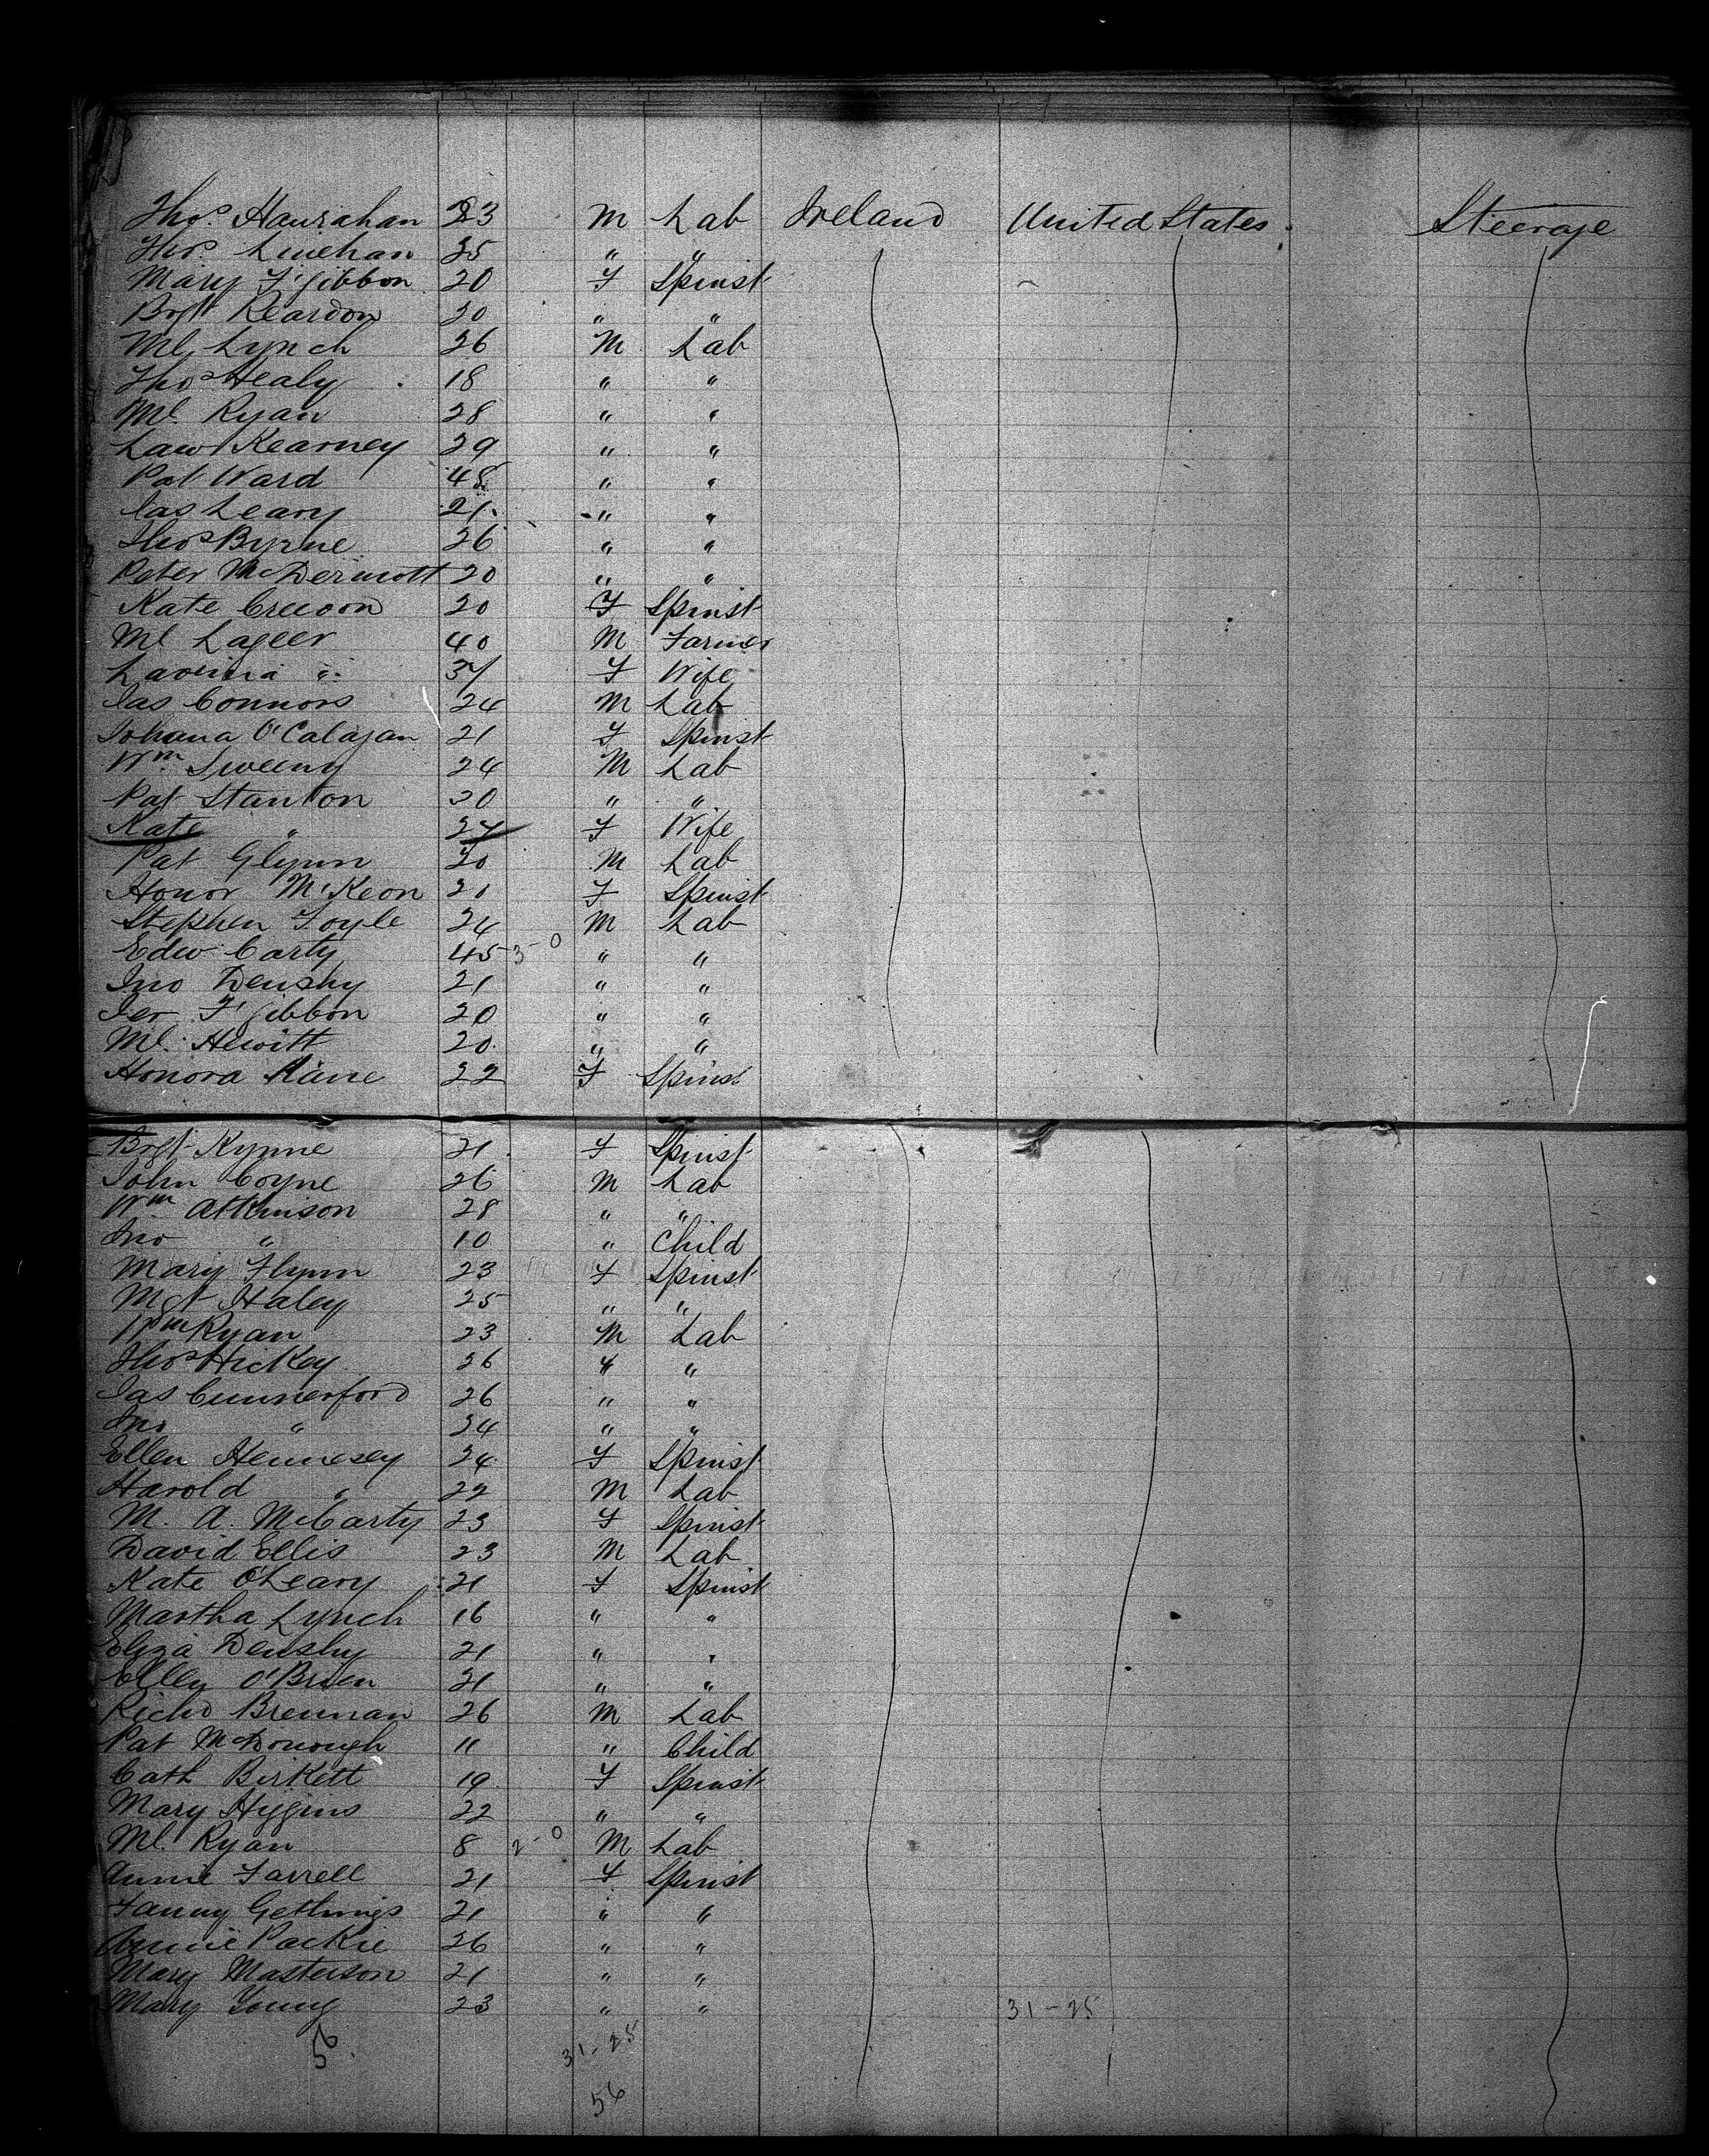 Thos Hanrahan 23 M Lab Ireland United States Steerage
Thos Linehan 25 " "
Mary F'Gibbon 20 F Spinst
Brgt Reardon 20 " "
Ml Lynch 26 M Lab
Thos Healy 18 " "
Ml Ryan 28 " "
Law Kearney 29 " "
Pat Ward 48 " "
Jas Leary 21 " "
Thos Byrne 26 " "
Peter McDermott 20 " "
Kate 20 F Spinst
Ml Lageer 40 M Farmer
Lavinia " 37 F Wife
Jas Connors 24 M Lab
Johana O'Calagan 21 F Spinst
Wm Sweeny 24 M Lab
Pat Stanton 30 " "
Kate " 27 F Wife
Pat Glynn 20 M Lab
Honor McKeon 21 F Spinst
Stephen Foyle 24 M Lab
Edw Carty 45 3-0 " "
Jno Densby 21 " "
Jer F'Gibbon 20 " "
Ml Hewitt 20 " "
Honora Kane 22 F Spinst
Brgt Kynne 21 F Spinst
John Coyne 26 M Lab
Wm Atkinson 28 " "
Jno " 10 " Child
Mary Flynn 23 F Spinst
Mgt Haley 25 " "
Wm Ryan 23 M Lab
Thos Hickey 26 " "
Jas Cunnerford 26 " "
Jno " 24 " "
Ellen Hennesey 24 F Spinst
Harold " 22 M Lab
M. A. McCarty 23 F Spinst
David Ellis 23 M Lab
Kate O'Leary 21 F Spinst
Martha Lynch 16 " "
Eliza Densby 21 " "
Elley O'Brien 21 " "
Richd Brennan 26 M Lab
Pat McDonough 11 " Child
Cath Birkett 19 F Spinst
Mary Higgins 22 " "
Ml Ryan 8 2-0 M Lab
Annie Farrell 21 F Spinst
Fanny Gethings 21 " "
Annie Packie 26 " "
Mary Masterson 21 " "
Mary Young 23 " " 31-25
56 31-25
56